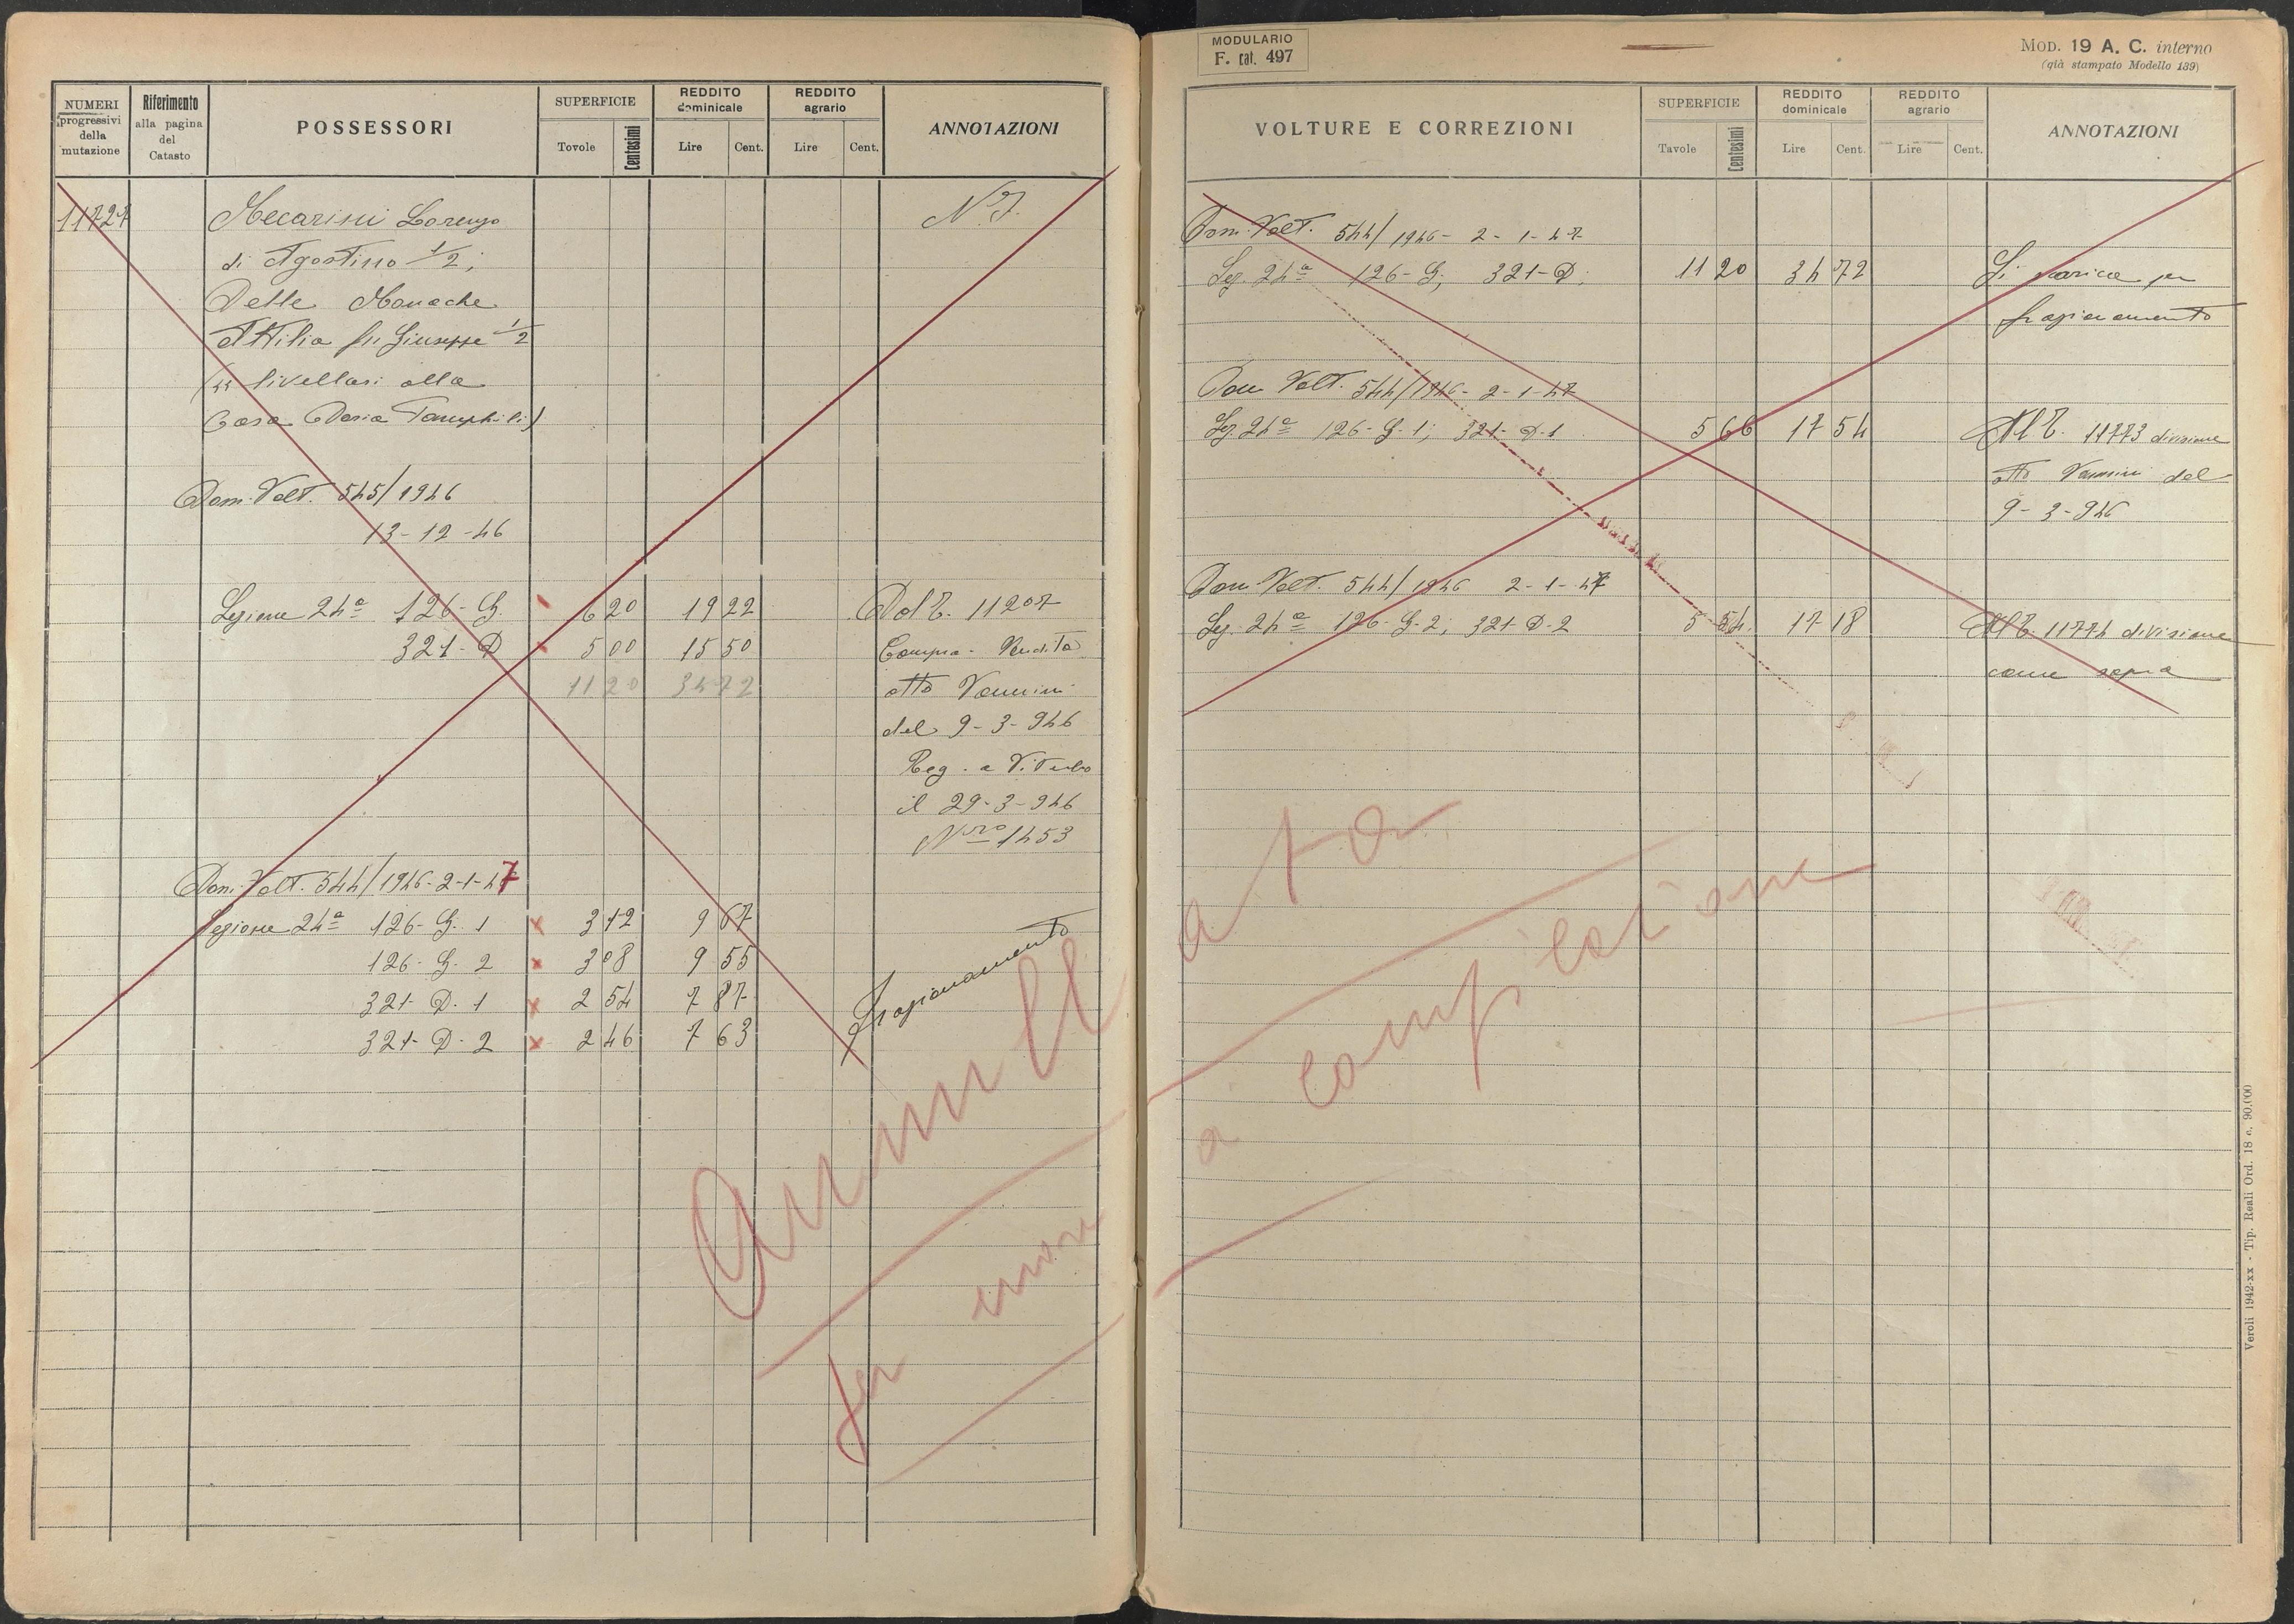 NUMERI progressivi della mutazione
Riferimento alla pagina del Catasto
POSSESSORI
SUPERFICIE
Tavole
Centesimi
REDDITO dominicale
Lire
Cent.
REDDITO agrario
Lire
Cent.
ANNOTAZIONI
11727
Mecarini Lorenzo
N. I.
di Agostino 1/2;
Delle Monache
Attilio fu Giuseppe 1/2
livellari alla
Casa Doria Pamphili)
Dom. Volt. 545/1946
13-12-46
Legione 24ª 126-G. 6 20 19 22 Dal P. 11207
321-D 5 00 15 50 Compra-Vendita
11 20 34 72 atto Vannini
del 9-3-946
Reg. a Viterbo
il 29-3-946
Nro 1453
Dom. Volt. 544/1946-2-1-47
Legione 24ª 126-G. 1 x 3 12 9 67
126-G. 2 x 3 08 9 55
321-D. 1 x 2 54 7 87
321-D-2 x 2 46 7 63
frazionamento
Annullato
per errore
a compilazione
MODULARIO
F. cat. 497
MOD. 19 A. C. interno
(già stampato Modello 139)
VOLTURE E CORREZIONI
SUPERFICIE
Tavole
Centesimi
REDDITO dominicale
Lire
Cent.
REDDITO agrario
Lire
Cent.
ANNOTAZIONI
Dom. Volt. 544/1946-2-1-47
Leg. 24ª 126-G; 321-D; 11 20 34 72 Si scarica per
frazionamento
Dom Volt. 544/1946-2-1-47
Leg. 24ª 126-G-1; 321-D-1 5 66 17 54 Al P. 11773 divisione
atto Vannini del
9-3-946
Dom Volt. 544/1946 2-1-47
Leg. 24ª 126-G-2; 321-D-2 5 54. 17 18 Al P. 11774 divisione
come sopra
Veroli 1942-xx - Tip. Reali Ord. 18 c. 90.000